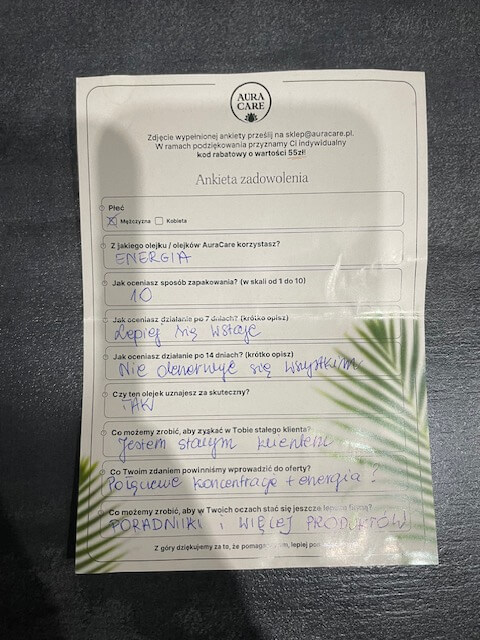 AURA
CARE
Zdjęcie wypełnionej ankiety prześlij na sklep@auracare.pl.
W ramach podziękowania przyznamy Ci indywidualny
kod rabatowy o wartości 55zł!
Ankieta zadowolenia
Płeć
Mężczyzna Kobieta
Z jakiego olejku / olejków AuraCare korzystasz?
ENERGIA
Jak oceniasz sposób zapakowania? (w skali od 1 do 10)
10
Jak oceniasz działanie po 7 dniach? (krótko opisz)
Lepiej się wstaje
Jak oceniasz działanie po 14 dniach? (krótko opisz)
Nie denerwuje się wszystkim
Czy ten olejek uznajesz za skuteczny?
TAK
Co możemy zrobić, aby zyskać w Tobie stałego klienta?
Jestem stałym klientem
Co Twoim zdaniem powinniśmy wprowadzić do oferty?
Połączenie koncentracja + energia!
Co możemy zrobić, aby w Twoich oczach stać się jeszcze lepszą firmą?
PORADNIKI i WIĘCEJ PRODUKTÓW
Z góry dziękujemy za to, że pomagasz nam, lepiej